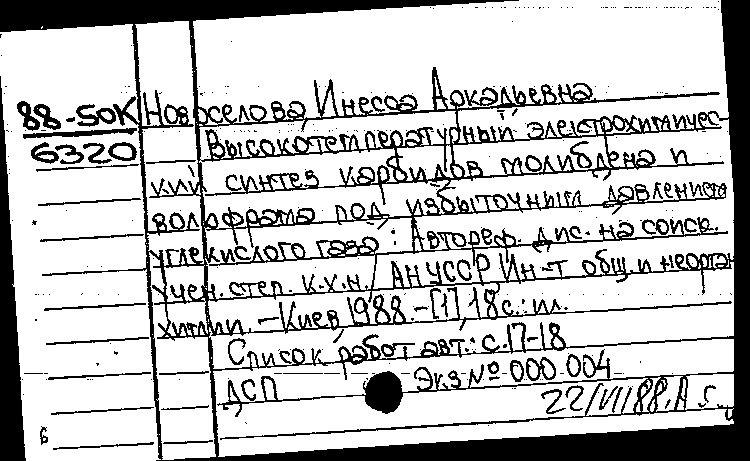 88-50К Новоселова, Инесса Аркадьевна.
6320 Высокотемпературный электрохимичес-
кий синтез карбидов молибдена и
вольфрама под избыточным давлением
углекислого газа: Автореф. дис. на соиск.
учен. степ. к.х.н. / АН УССР Ин-т общ. и неорган.
химии. - Киев, 1988. - [1], 18 с.: ил.
Список работ авт.: с.17-18
ДСП Экз № 000 004
22/VII 88. А 5.
Б